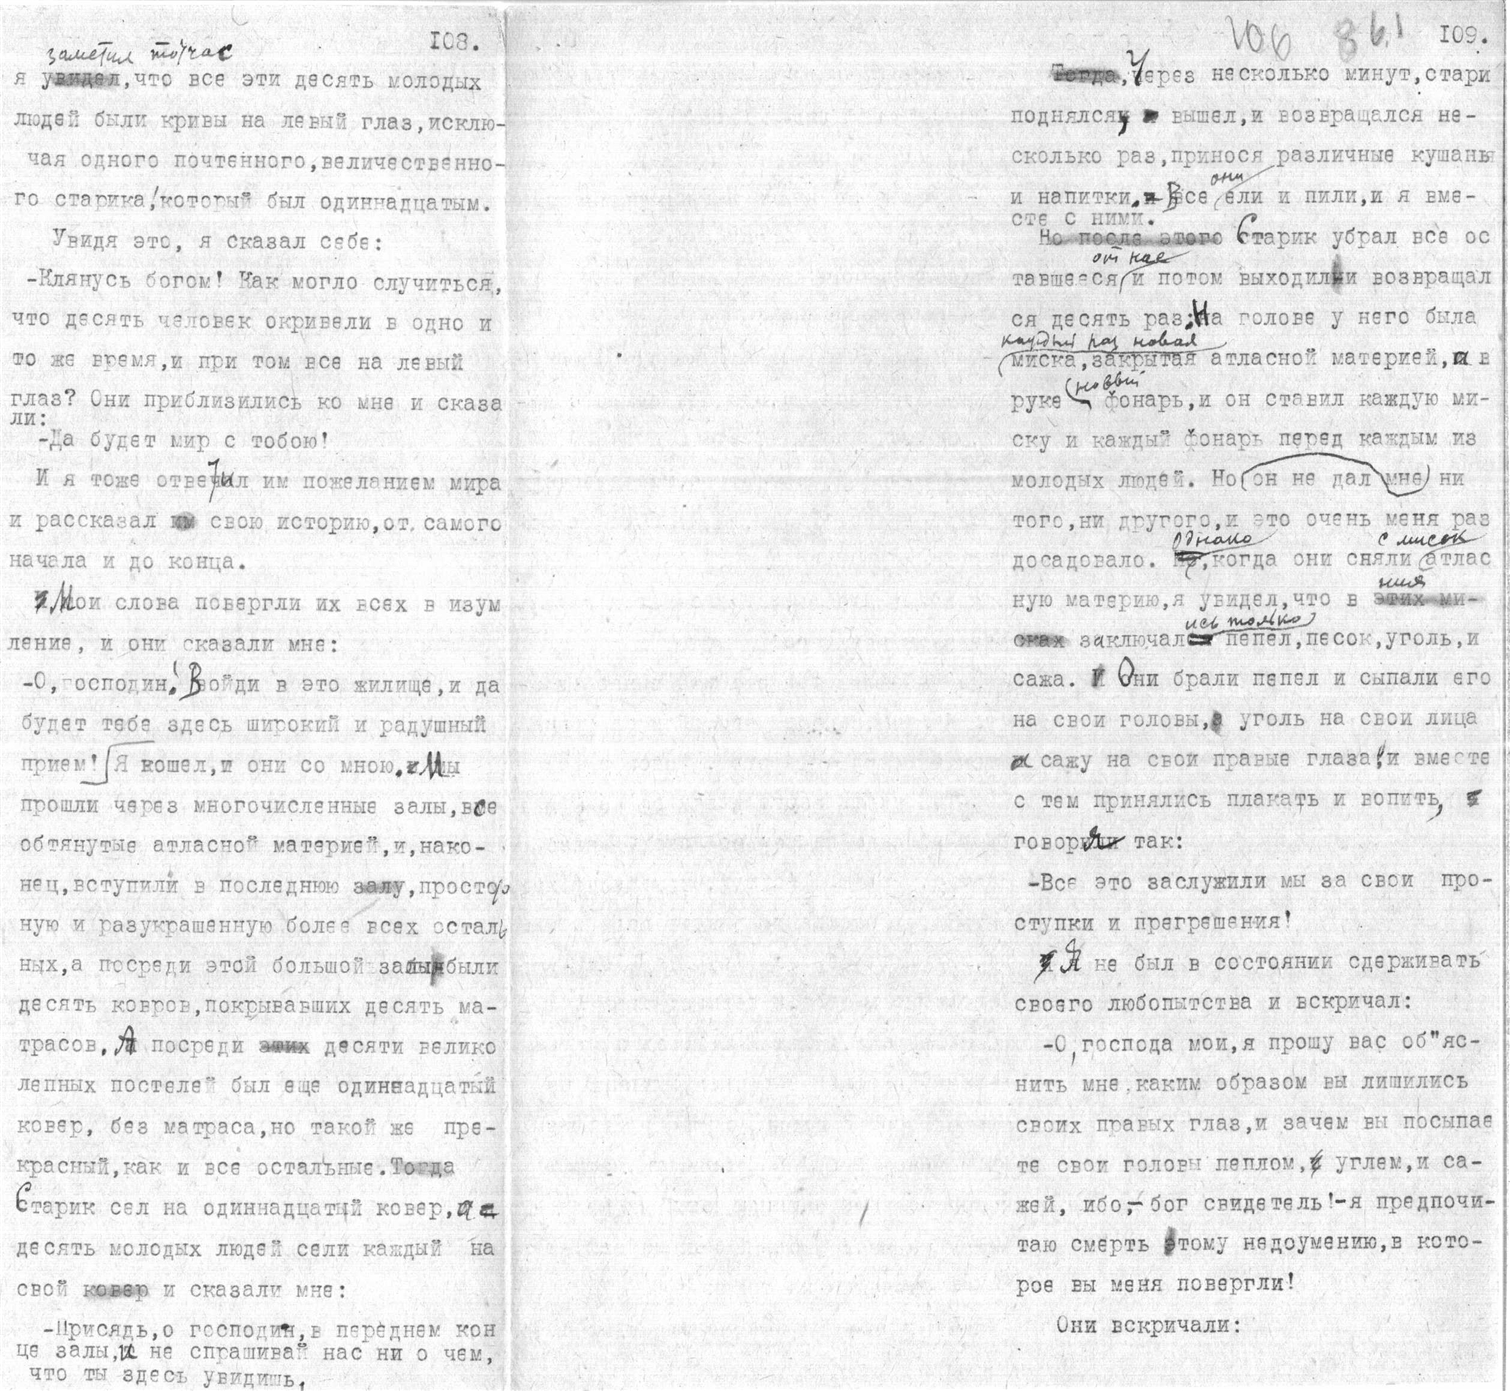 108.
заметил тотчас
я увидел,что все эти десять молодых
людей были кривы на левый глаз,исклю-
чая одного почтенного,величественно-
го старика,который был одиннадцатым.
Увидя это, я сказал себе:
-Клянусь богом! Как могло случиться,
что десять человек окривели в одно и
то же время,и при том все на левый
глаз? Они приблизились ко мне и сказа
ли:
-Да будет мир с тобою!
И я тоже ответил им пожеланием мира
и рассказал им свою историю,от самого
начала и до конца.
Мои слова повергли их всех в изум
ление, и они сказали мне:
-О,господин! Войди в это жилище,и да
будет тебе здесь широкий и радушный
прием! Я вошел,и они со мною. Мы
прошли через многочисленные залы,все
обтянутые атласной материей,и,нако-
нец,вступили в последнюю залу,простор
ную и разукрашенную более всех осталь
ных,а посреди этой большой залы были
десять ковров,покрывавших десять ма-
трасов. А посреди этих десяти велико
лепных постелей был еще одиннадцатый
ковер, без матраса,но такой же пре-
красный,как и все остальные.Тогда
Старик сел на одиннадцатый ковер,а
десять молодых людей сели каждый на
свой ковер и сказали мне:
-Присядь,о господин,в переднем кон
це залы,и не спрашивай нас ни о чем,
что ты здесь увидишь.
106 861 109.
Тогда,Через несколько минут,стари
поднялся, вышел,и возвращался не-
сколько раз,принося различные кушаньи
они
и напитки. Все ели и пили,и я вме-
сте с ними.
Но после этого Старик убрал все ос
от нас
тавшееся и потом выходил и возвращал
ся десять раз. На голове у него была
каждый раз новая
миска,закрытая атласной материей,а в
новый
руке фонарь,и он ставил каждую ми-
ску и каждый фонарь перед каждым из
молодых людей. Но он не дал мне ни
того,ни другого,и это очень меня раз
однако с мисок
досадовало. Но,когда они сняли атлас
них
ную материю,я увидел,что в этих ми-
ись только
сках заключал пепел,песок,уголь,и
сажа. Они брали пепел и сыпали его
на свои головы, уголь на свои лица
и сажу на свои правые глаза!и вместе
с тем принялись плакать и вопить,
говоря так:
-Все это заслужили мы за свои про-
ступки и прегрешения!
Я не был в состоянии сдерживать
своего любопытства и вскричал:
-О,господа мои,я прошу вас об"яс-
нить мне каким образом вы лишились
своих правых глаз,и зачем вы посыпае
те свои головы пеплом, углем,и са-
жей, ибо,- бог свидетель!-я предпочи-
таю смерть этому недоумению,в кото-
рое вы меня повергли!
Они вскричали: